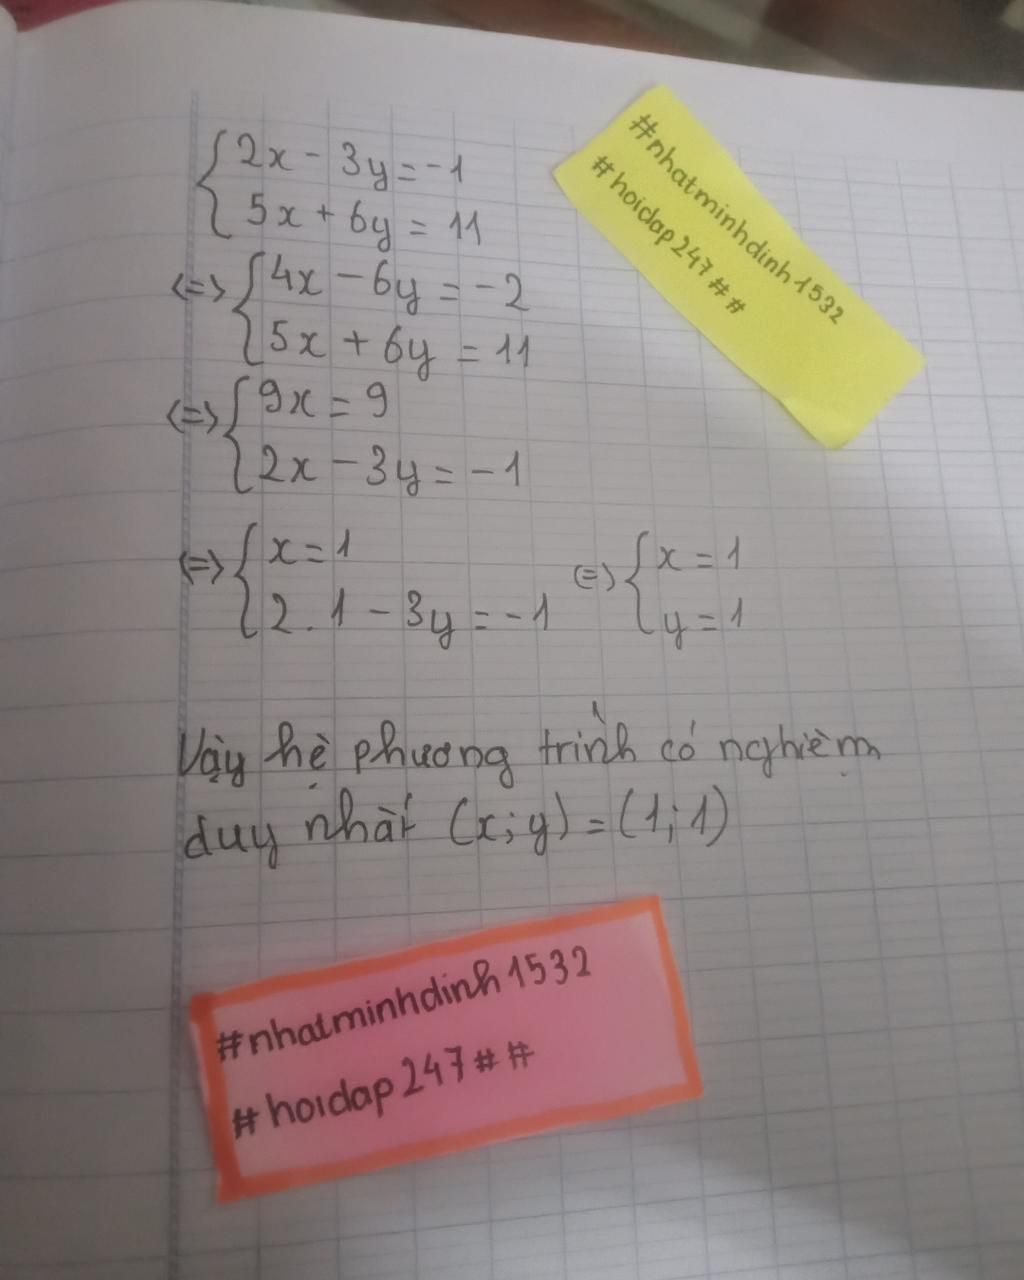 2x - 3y = -1
5x + 6y = 11
<=> 4x - 6y = -2
5x + 6y = 11
<=> 9x = 9
2x - 3y = -1
<=> x = 1
2.1 - 3y = -1
<=> x = 1
y = 1
Vậy hệ phương trình có nghiệm
duy nhất (x;y) = (1;1)
#nhatminhdinh1532
#hoidap247##
#nhatminhdinh1532
#hoidap247##